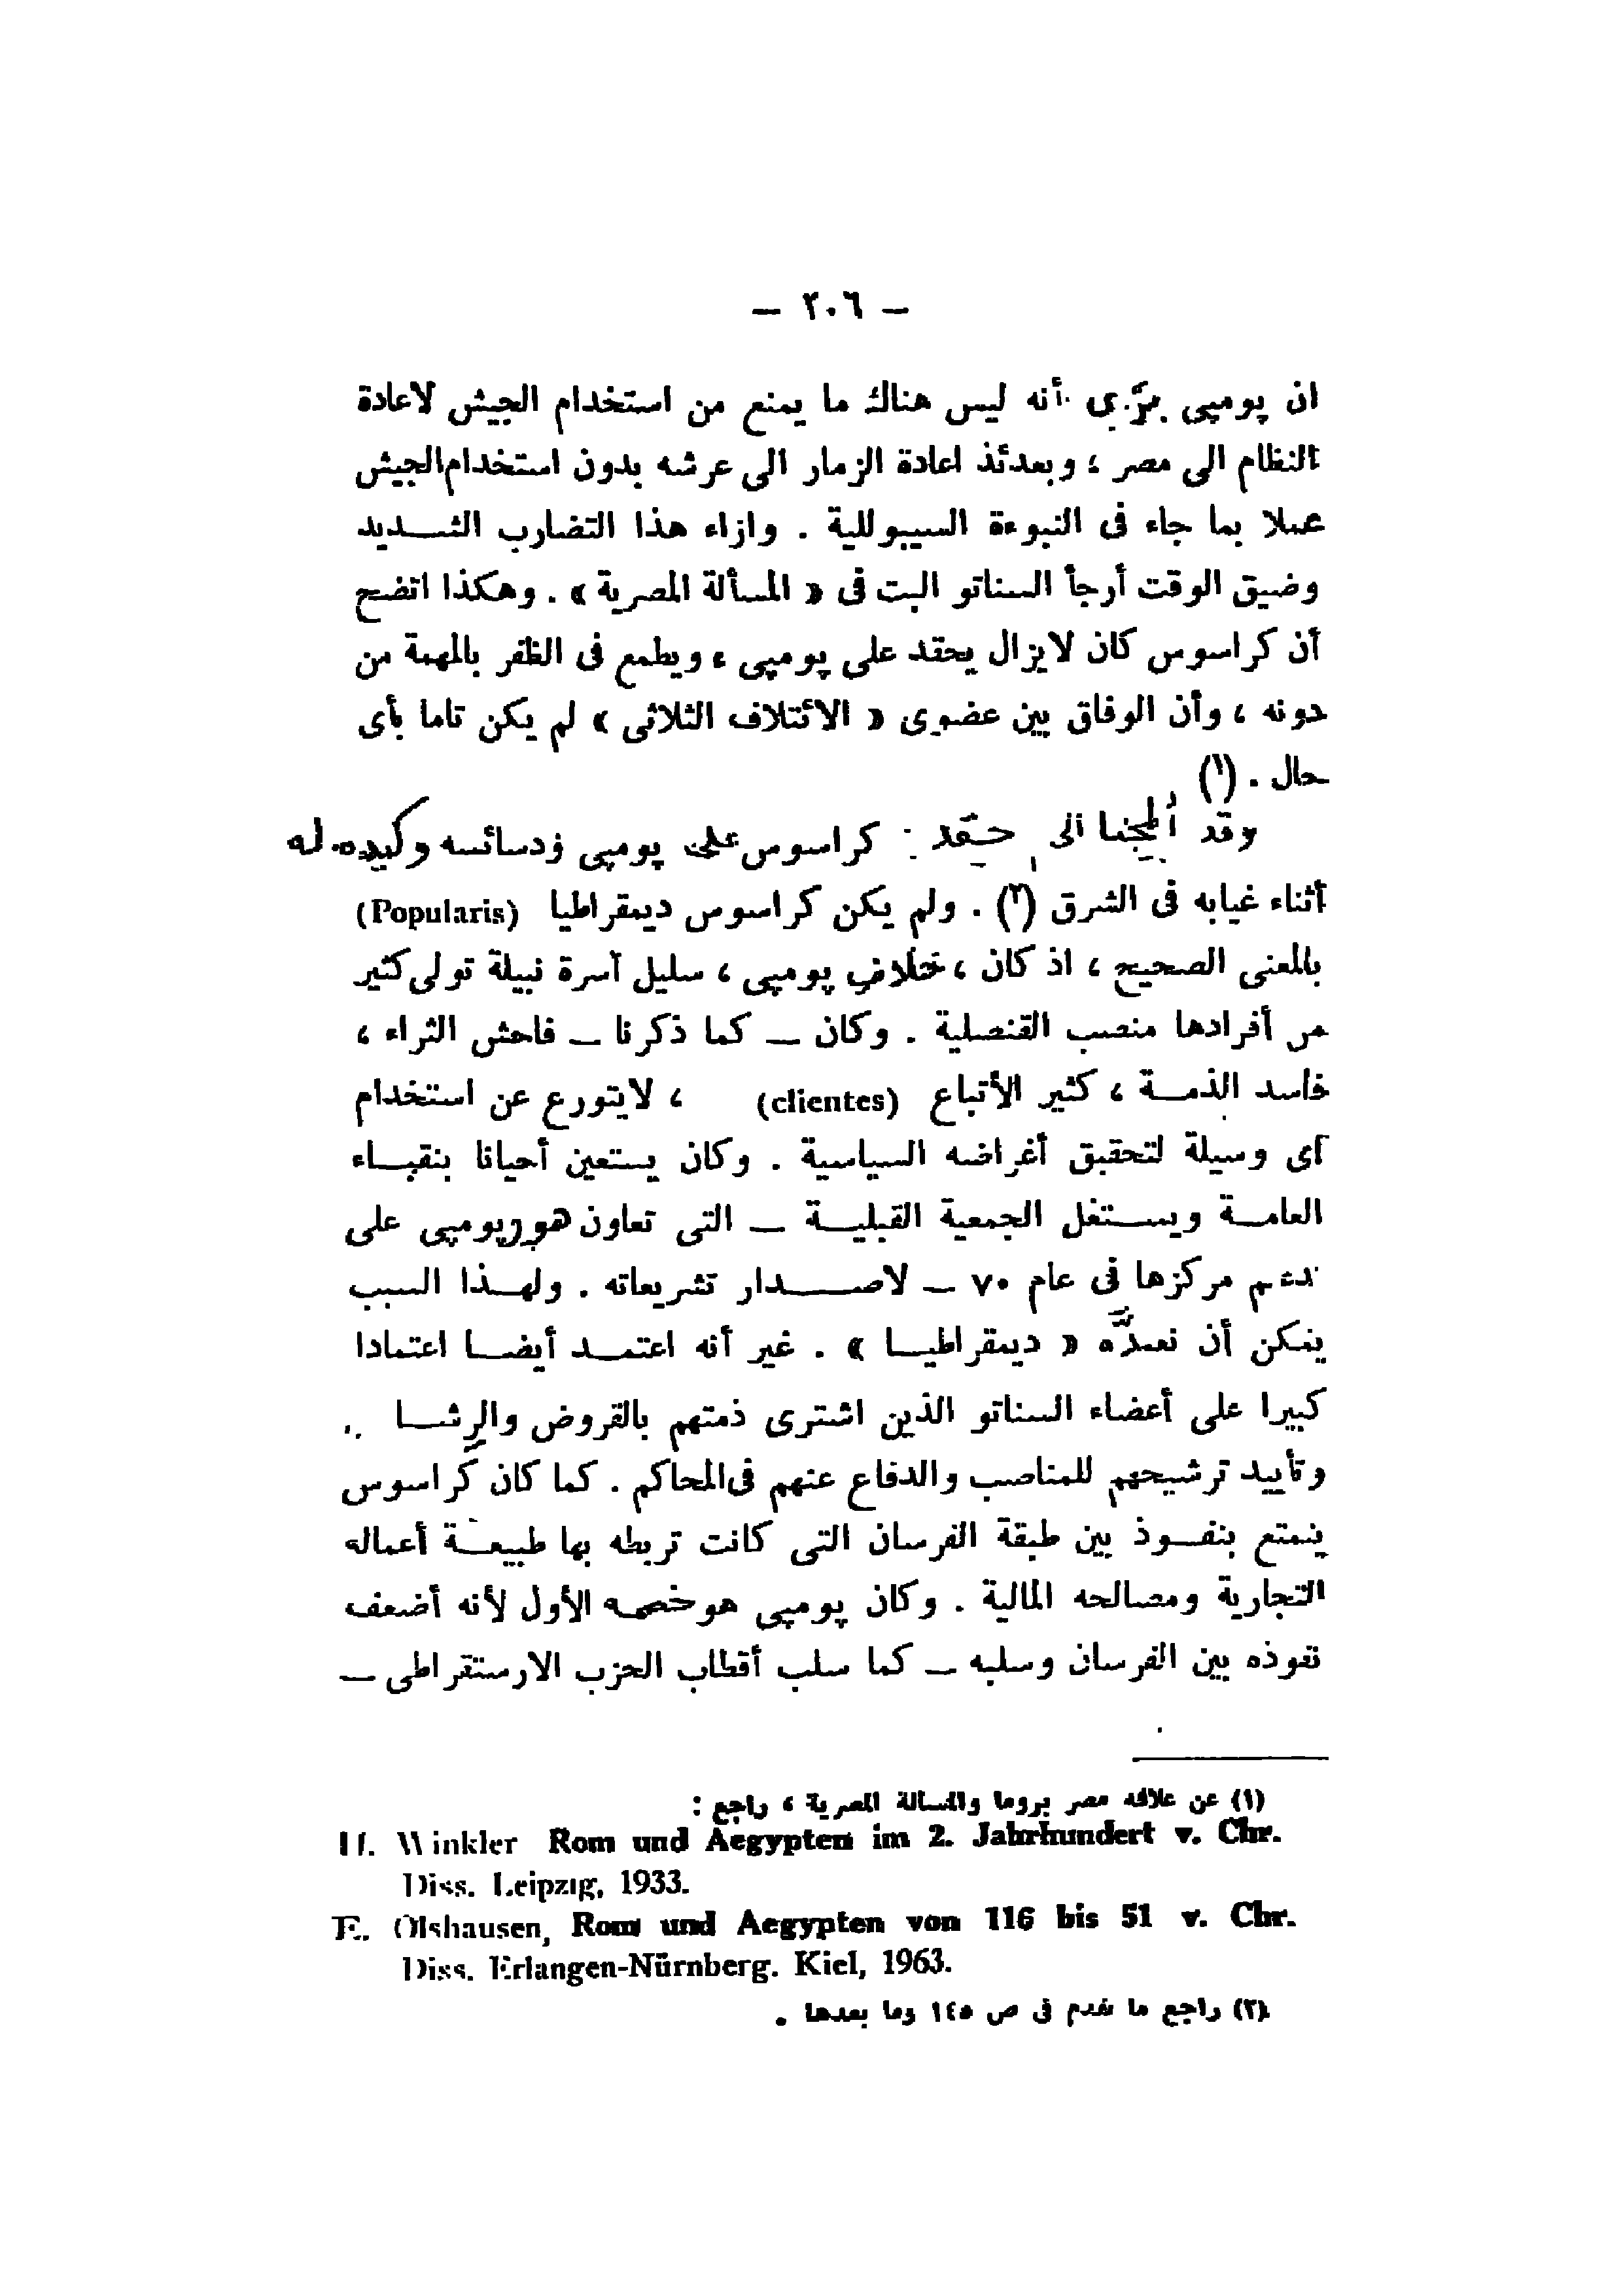 — ٢٠٦ —
ان پومپى يرى أنه ليس هناك ما يمنع من استخدام الجيش لاعادة
النظام الى مصر ؛ وبعدئذ اعادة الزمار الى عرشه بدون استخدام الجيش
عملا بما جاء فى النبوءة السيبوللية . وازاء هذا التضارب الشـــديد
وضيق الوقت أرجأ السناتو البت فى « المسألة المصرية » . وهكذا اتضح
أن كراسوس كان لايزال يحقد على پومپى ، ويطمع فى الظفر بالمهمة من
دونه ، وأن الوفاق بين عضوى « الائتلاف الثلاثى » لم يكن تاما بأى
حال . (١)
وقد ألمحنا الى حقد كراسوس على پومپى ودسائسه وكيده له
أثناء غيابه فى الشرق (٢) . ولم يكن كراسوس ديمقراطيا (Popularis)
بالمعنى الصحيح ، اذ كان ، خلاف پومپى ، سليل أسرة نبيلة تولى كثير
من أفرادها منصب القنصلية . وكان — كما ذكرنا — فاحش الثراء ،
فاسد الذمـــة ، كثير الأتباع (clientes) ، لايتورع عن استخدام
أى وسيلة لتحقيق أغراضه السياسية . وكان يستعين أحيانا بنقبـــاء
العامـــة ويســـتغل الجمعية القبليـــة — التى تعاون هو وپومپى على
تدعيم مركزها فى عام ٧٠ — لاصـــدار تشريعاته . ولهـــذا السبب
يمكن أن نعدّه « ديمقراطيـــا » . غير أنه اعتمـــد أيضـــا اعتمادا
كبيرا على أعضاء السناتو الذين اشترى ذمتهم بالقروض والرشـــا
وتأييد ترشيحهم للمناصب والدفاع عنهم فى المحاكم . كما كان كراسوس
يتمتع بنفـــوذ بين طبقة الفرسان التى كانت تربطه بها طبيعـــة أعماله
التجارية ومصالحه المالية . وكان پومپى هو خصمه الأول لأنه أضعف
نفوذه بين الفرسان وسلبه — كما سلب أقطاب الحزب الارستقراطى —
(١) عن علاقة مصر بروما والمسالة المصرية ، راجع :
H. Winkler Rom und Aegypten im 2. Jahrhundert v. Chr.
Diss. Leipzig, 1933.
E. Olshausen, Rom und Aegypten von 116 bis 51 v. Chr.
Diss. Erlangen-Nürnberg. Kiel, 1963.
(٢) راجع ما تقدم فى ص ١٤٥ وما بعدها .